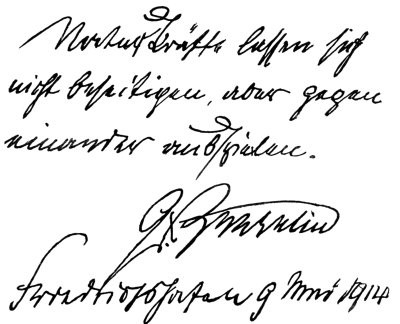 Naturkräfte lassen sich
nicht beseitigen, aber gegen
einander ausspielen.
Gf. Zeppelin
Friedrichshafen 9 Mai 1914